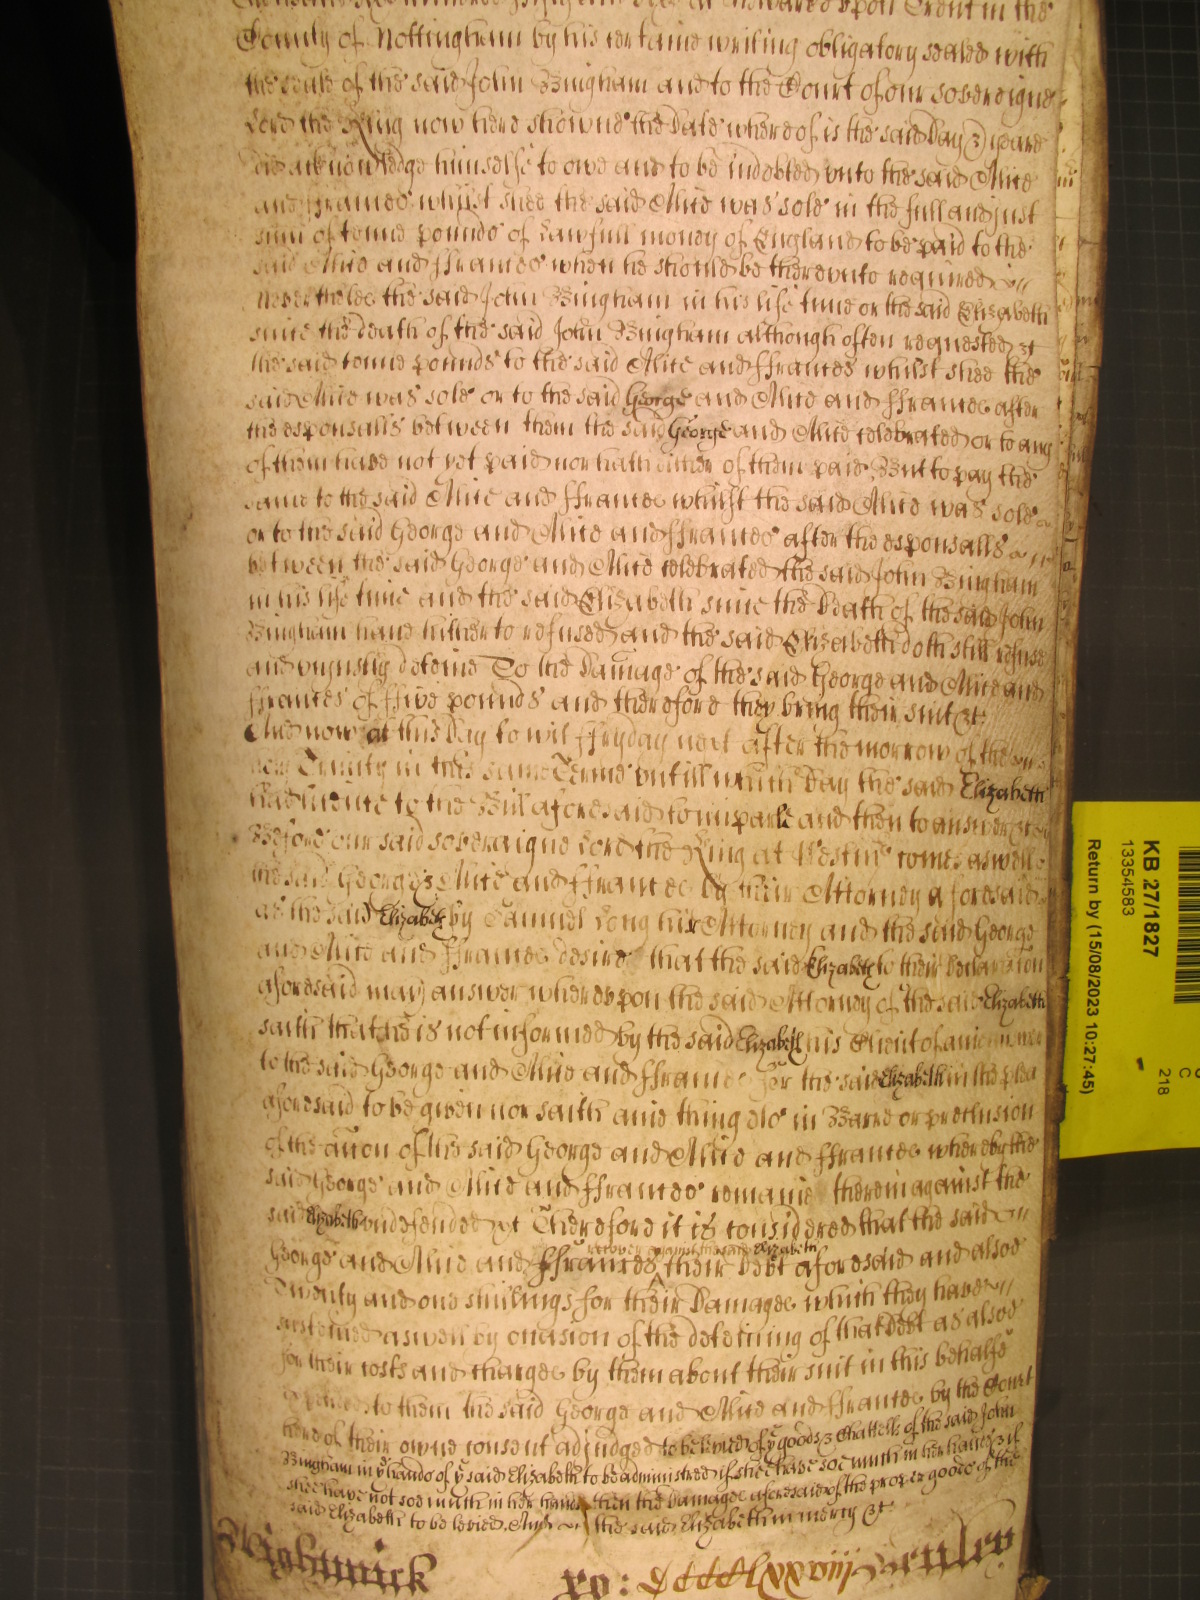 hundred upon Trent in the
County of Nottingham by his certaine writing obligatory sealed with
the seale of the said John Bingham and to the Court of our sovereigne
Lord the King now here showne the Date whereof is the said Day & yeare
did acknowledge himselfe to owe and to be indebted unto the said Alice
and Frances whilst shee the said Alice was sole in the full and just
sum of tenne pounds of Lawfull money of England to be paid to the
said Alice and Frances when he should be thereunto required
neverthelес the said John Bingham in his life time or the said Elizabeth
since the death of the said John Bingham although often requested &c
the said tenne pounds to the said Alice and Frances whilst shee the
said Alice was sole or to the said George and Alice and Frances after
the espousalls between them the said George and Alice celebrated or to any
of them have not yet paid nor hath either of them paid But to pay the
same to the said Alice and Frances whilst the said Alice was sole
or to the said George and Alice and Frances after the espousalls
between the said George and Alice celebrated the said John Bingham
in his life time and the said Elizabeth since the Death of the said John
Bingham have hitherto refused and the said Elizabeth doth still refuse
and unjustly deteine To the Damage of the said George and Alice and
Frances of ffive pounds and therefore they bring their suit &c
And now at this Day to wit ffryday next after the morrow of the
Trinity in this same Terme untill which Day the said Elizabeth
had licence to the Bill aforesaid to imparle and then to answer &c
Before our said sovereigne Lord the King at Westmr comes aswell
the said George Alice and Frances by their Attorney aforesaid
as the said Elizabeth by Samuel Long his Attorney and the said George
and Alice and Frances desire that the said Elizabeth to their Declaration
aforesaid may answer whereupon the said Attorney of the said Elizabeth
saith that he is not informed by the said Elizabeth his Client of anie answer
to the said George and Alice and Frances for the said Elizabeth in the plea
aforesaid to be given nor saith anie thing els in Barre or preclusion
of the accon of the said George and Alice and Frances whereby the
said George and Alice and Frances remaine therein against the
said Elizabeth undefended &c Therefore it is considered that the said
recover against the said Elizabeth
George and Alice and Frances their Debt aforesaid and alsoe
Twenty and one shillings for their Damages which they have
susteined aswell by occasion of the deteining of that Debt as alsoe
for their costs and charges by them about their suit in this behalfe
to them the said George and Alice and Frances by the Court
here of their owne consent adjudged to be levied of ye goods & Chattells of the said John
Bingham in ye hands of ye said Elizabeth to be administred if shee have soe much in her hands & if
shee have not soe much in her hands then the Damages aforesaid of the proper goods of the
said Elizabeth to be levied And the said Elizabeth in mercy &c
Wightwick ro: CCCClxxviij Henley
KB 27/1827
13354583
Return by (15/08/2023 10:27:45)
218
C